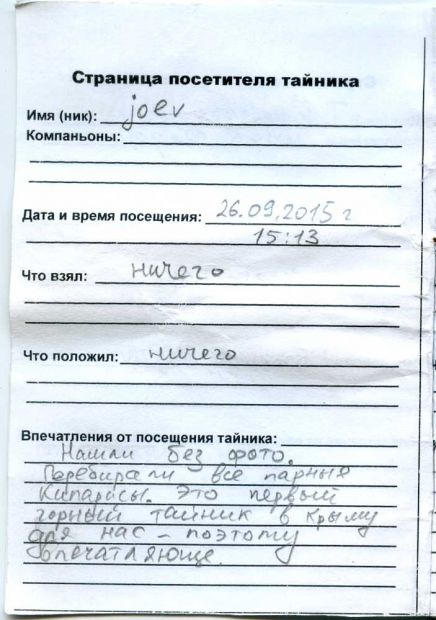 Страница посетителя тайника
Имя (ник): joev
Компаньоны:
Дата и время посещения: 26.09.2015 г
15:13
Что взял: ничего
Что положил: ничего
Впечатления от посещения тайника:
Нашли без фото.
Перебирали все парные
Кипарисы. Это первый
горный тайник в Крыму
для нас - поэтому
впечатляюще.